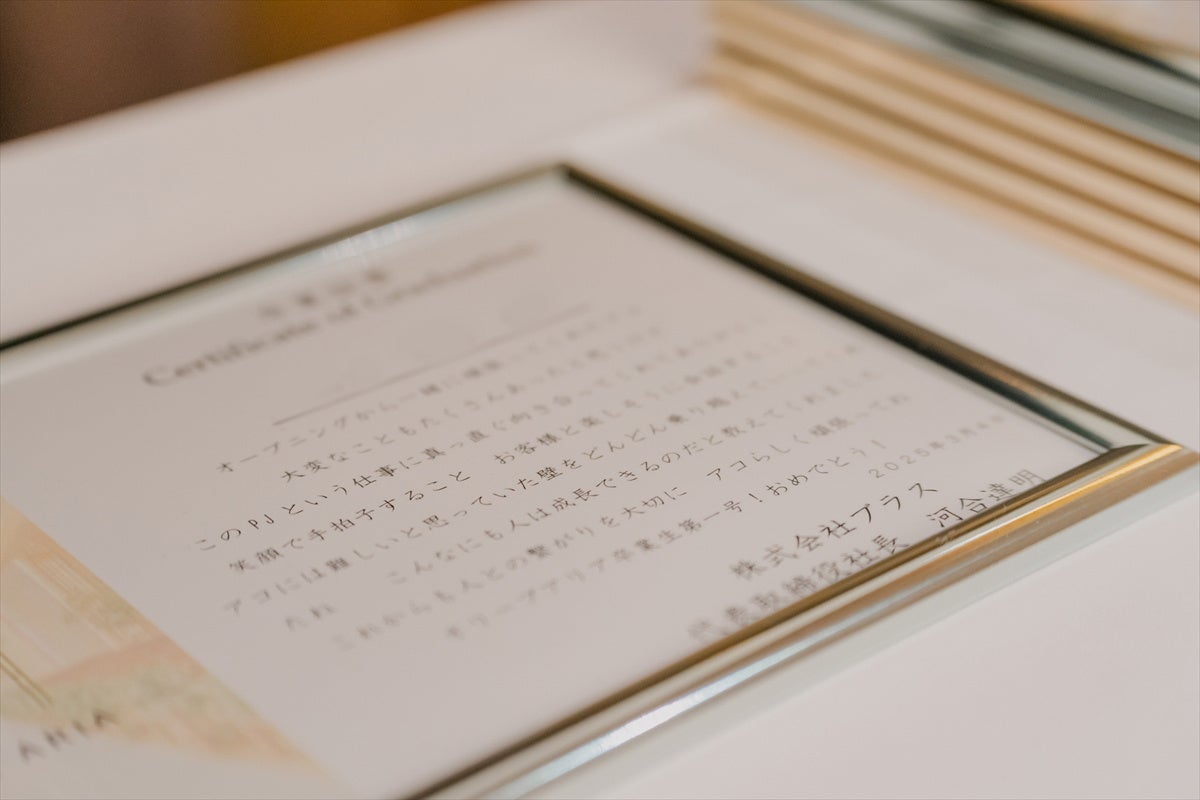 卒業証書
Certificate of Graduation
オープニングから一緒に頑張ってくれて
大変なこともたくさんあったと思うけど
このPJという仕事に真っ直ぐ向き合ってくれてありがとう
笑顔で手拍子すること お客様と楽しそうに会話すること
アコには難しいと思っていた壁をどんどん乗り越えていってくれ
たね こんなにも人は成長できるのだと教えてくれました
これからも人との繋がりを大切に アコらしく頑張ってね
卒業生第一号!おめでとう!
2025年3月
株式会社プラス
代表取締役社長 河合達明
ARIA